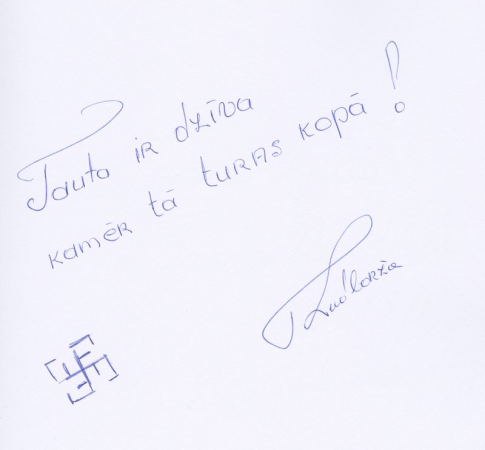 Tauta ir dzīva
kamēr tā turas kopā!